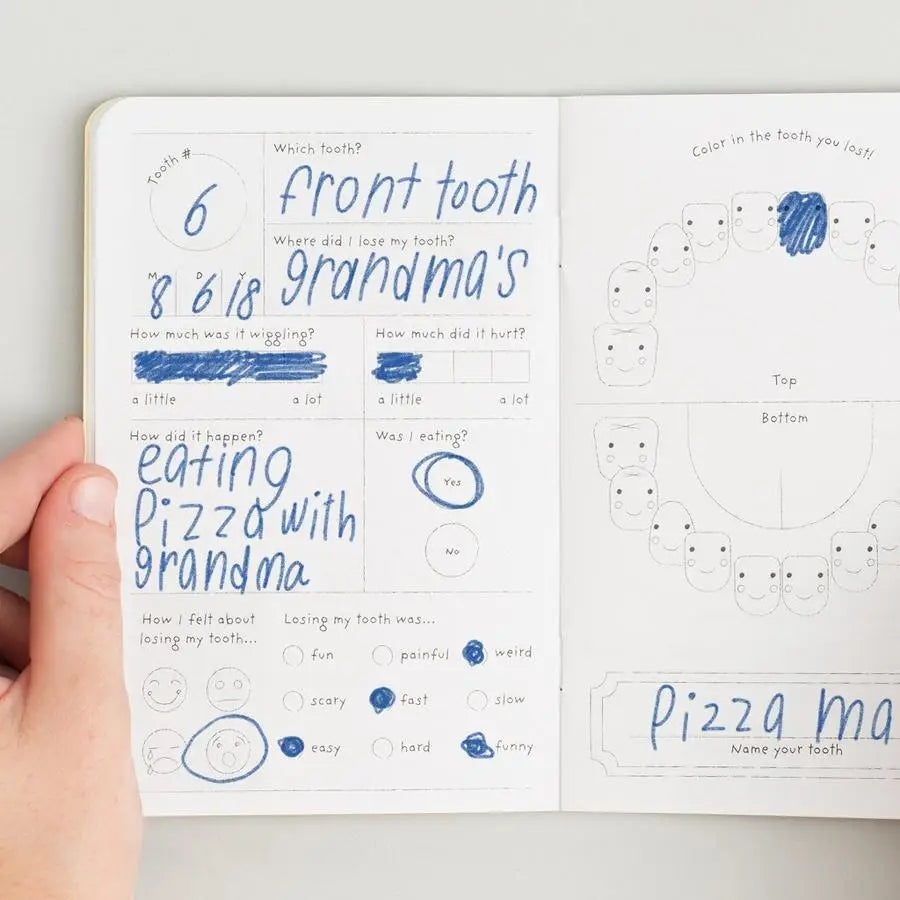 Tooth #
6
M D Y
8 6 18
Which tooth?
front tooth
Where did I lose my tooth?
grandma's
How much was it wiggling?
a little a lot
How much did it hurt?
a little a lot
How did it happen?
eating
pizza with
grandma
Was I eating?
Yes
No
How I felt about
losing my tooth...
Losing my tooth was...
fun painful weird
scary fast slow
easy hard funny
Color in the tooth you lost!
Top
Bottom
pizza ma
Name your tooth